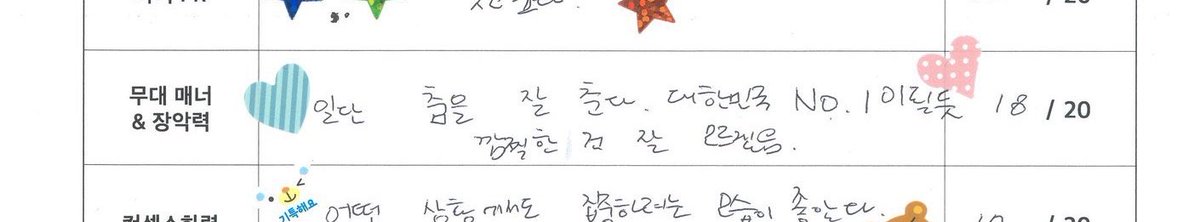 무대 매너
& 장악력
일단 춤을 잘 춘다. 대한민국 NO.1 이될듯 18 / 20
깜찍한 건 잘 모르겠음.
기특해요
어떤 상황에서도 집중하려는 모습이 좋았다.